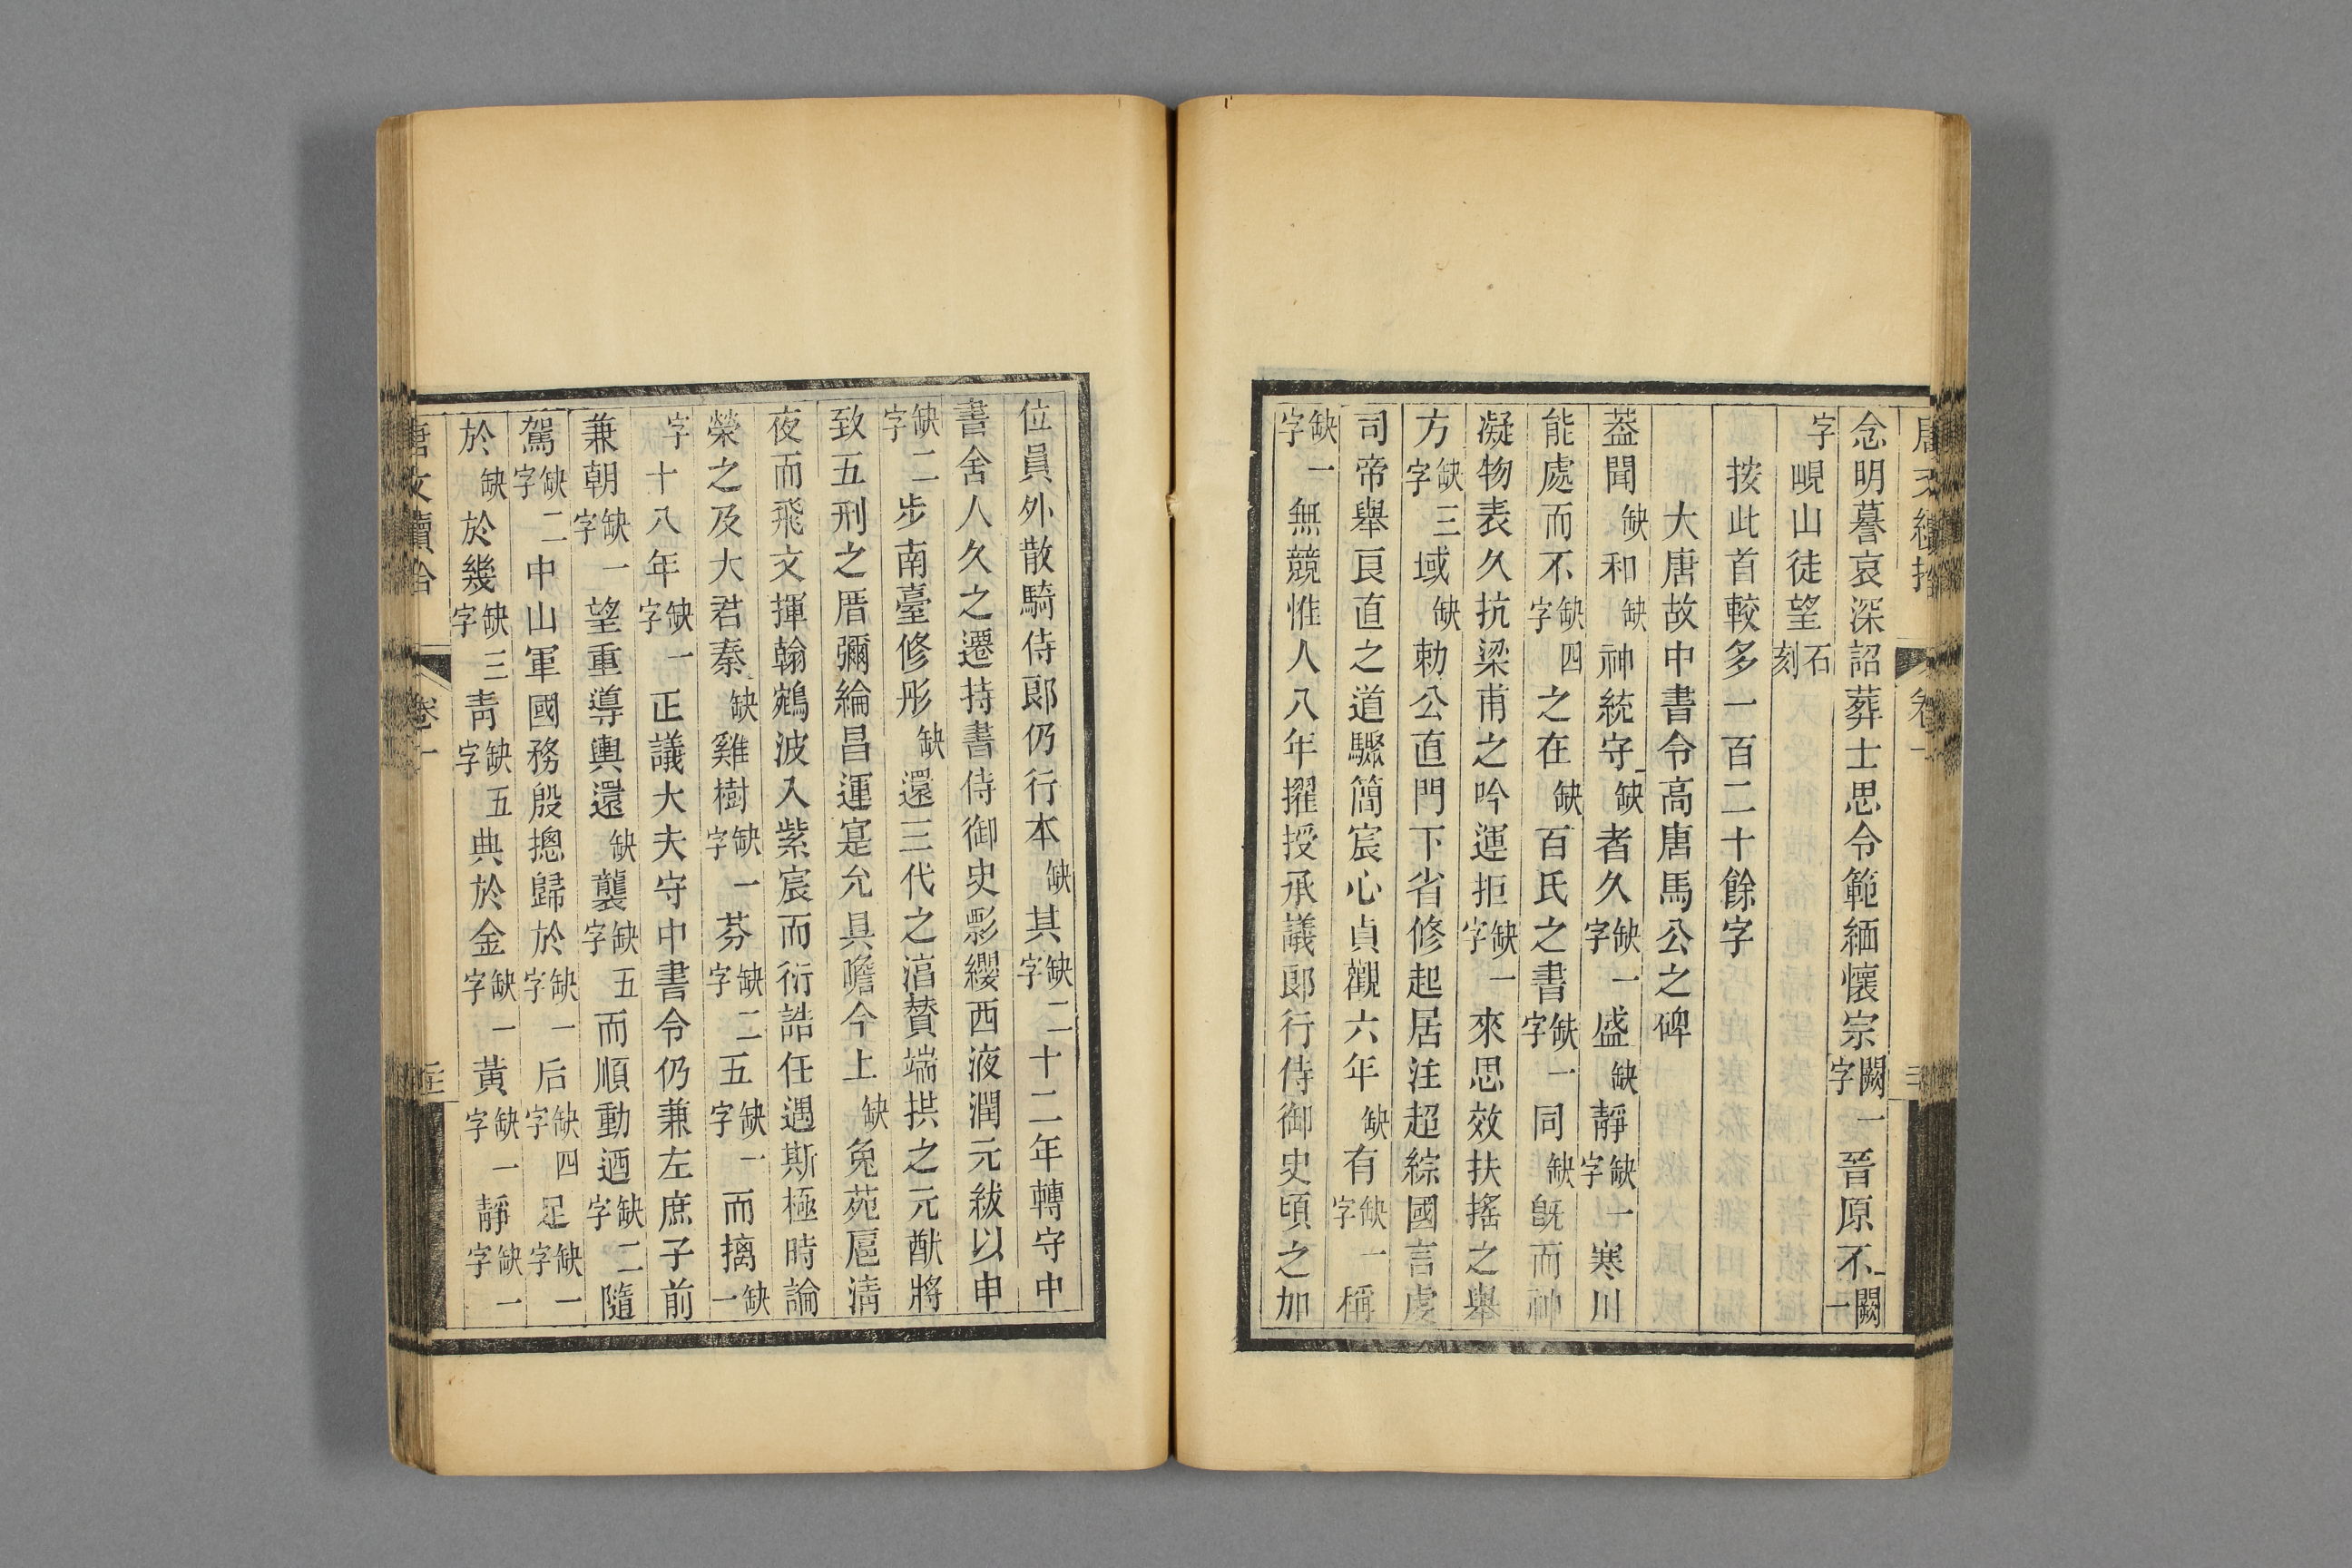 念明蓦哀深詔葬士思令範緬懷宗闕一字晉原不闕一
字峴山徒望石刻
按此首較多一百二十餘字
大唐故中書令高唐馬公之碑
葢聞缺和缺神統守缺者久缺一字盛缺靜缺一字寒川
能處而不缺四字之在缺百氏之書缺一字同缺旣而神
凝物表久抗梁甫之吟運拒缺一字來思效扶搖之舉
方缺三字域缺勅公直門下省修起居注超綜國言虔
司帝舉良直之道驟簡宸心貞觀六年缺有缺一字稱
缺一字無競惟人八年擢授承議郎行侍御史頃之加
位員外散騎侍郎仍行本缺其缺二字十二年轉守中
書舍人久之遷持書侍御史影纓西液潤元紱以申
缺二字步南臺修彤缺還三代之湻賛端拱之元猷將
致五刑之厝彌綸昌運寔允具瞻今上缺兔苑扈清
夜而飛文揮翰鵷波入紫宸而衍誥任遇斯極時論
榮之及大君秦缺雞樹缺一字芬缺二字五缺一字而摛缺一
字十八年缺一字正議大夫守中書令仍兼左庶子前
兼朝缺一字望重導輿還缺襲缺五字而順動迺缺二字隨
駕缺二字中山軍國務殷摠歸於缺一字后缺四字足缺一字
於缺於幾缺三字靑缺五字典於金缺一字黃缺一字靜缺一字
唐文續拾 卷一